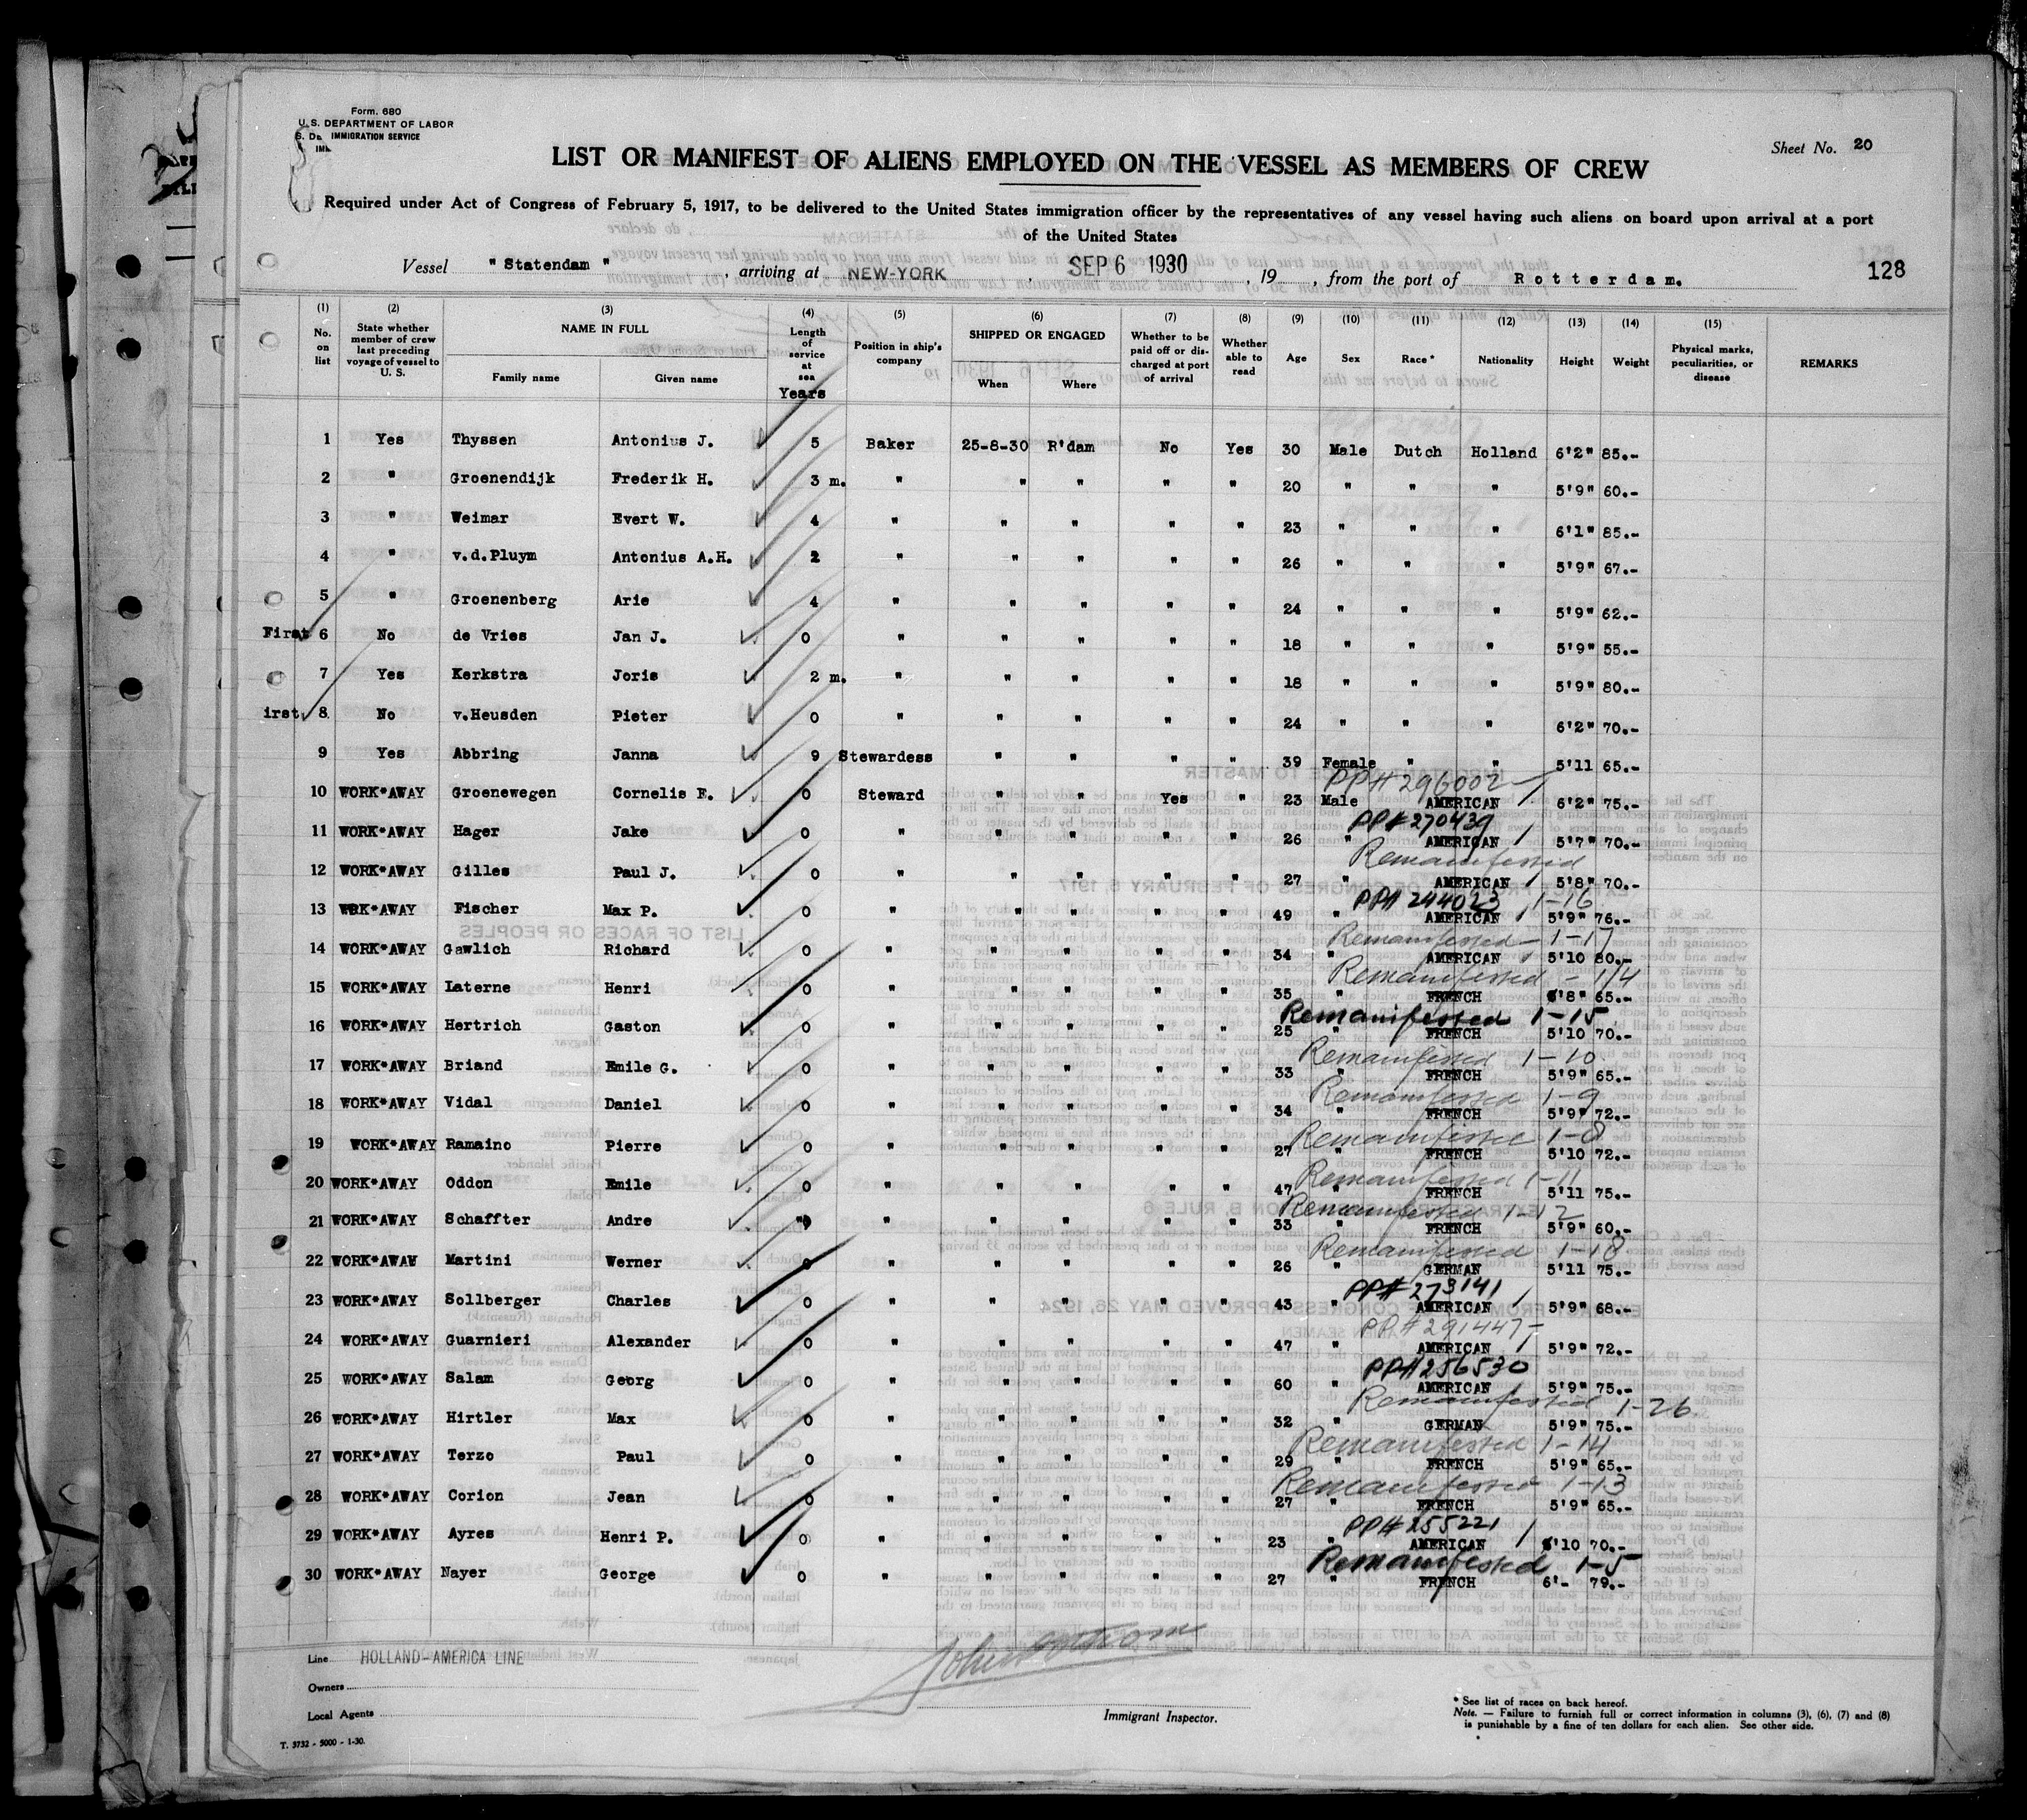 Form. 680
U. S. DEPARTMENT OF LABOR
IMMIGRATION SERVICE
Sheet No. 20
LIST OR MANIFEST OF ALIENS EMPLOYED ON THE VESSEL AS MEMBERS OF CREW
Required under Act of Congress of February 5, 1917, to be delivered to the United States immigration officer by the representatives of any vessel having such aliens on board upon arrival at a port
of the United States
Vessel "Statendam", arriving at NEW-YORK, SEP 6 1930, 19 , from the port of Rotterdam.
128
(1) No. on list (2) State whether member of crew last preceding voyage of vessel to U. S. (3) NAME IN FULL Family name Given name (4) Length of service at sea Years (5) Position in ship's company (6) SHIPPED OR ENGAGED When Where (7) Whether to be paid off or discharged at port of arrival (8) Whether able to read (9) Age (10) Sex (11) Race* (12) Nationality (13) Height (14) Weight (15) Physical marks, peculiarities, or disease REMARKS
1 Yes Thyssen Antonius J. 5 Baker 25-8-30 R'dam No Yes 30 Male Dutch Holland 6'2" 85.-
2 " Groenendijk Frederik H. 3 m. " " " " " 20 " " " 5'9" 60.-
3 " Weimar Evert W. 4 " " " " " 23 " " " 6'1" 85.-
4 " v.d.Pluym Antonius A.H. 2 " " " " " 26 " " " 5'9" 67.-
5 " Groenenberg Arie 4 " " " " " 24 " " " 5'9" 62.-
First 6 No de Vries Jan J. 0 " " " " " 18 " " " 5'9" 55.-
7 Yes Kerkstra Joris 2 m. " " " " " 18 " " " 5'9" 80.-
irst 8 No v.Heusden Pieter 0 " " " " " 24 " " " 6'2" 70.-
9 Yes Abbring Janna 9 Stewardess " " " " 39 Female " " 5'11 65.-
PP# 296002
10 WORK*AWAY Groenewegen Cornelis F. 0 Steward " " Yes " 23 Male AMERICAN 6'2" 75.-
PP# 270439
11 WORK*AWAY Hager Jake 0 " " " " " 26 " AMERICAN 5'7" 70.-
Remanifested
12 WORK*AWAY Gilles Paul J. 0 " " " " " 27 " AMERICAN 5'8" 70.-
PP# 244023 1-16
13 WORK*AWAY Fischer Max P. 0 " " " " " 49 " AMERICAN 5'9" 76.-
Remanifested - 1-17
14 WORK*AWAY Gawlich Richard 0 " " " " " 34 " AMERICAN 5'10 80.-
Remanifested - 1/4
15 WORK*AWAY Laterne Henri 0 " " " " " 35 " FRENCH 6'8" 65.-
Remanifested 1-15
16 WORK*AWAY Hertrich Gaston 0 " " " " " 25 " FRENCH 5'10 70.-
Remanifested 1-10
17 WORK*AWAY Briand Emile G. 0 " " " " " 33 " FRENCH 5'9" 65.-
Remanifested 1-9
18 WORK*AWAY Vidal Daniel 0 " " " " " 34 " FRENCH 5'9" 72.-
Remanifested 1-8
19 WORK*AWAY Ramaino Pierre 0 " " " " " 27 " FRENCH 5'10 72.-
Remanifested 1-11
20 WORK*AWAY Oddon Emile 0 " " " " " 47 " FRENCH 5'11 75.-
Remanifested 1-12
21 WORK*AWAY Schaffter Andre 0 " " " " " 33 " FRENCH 5'9" 60.-
Remanifested 1-18
22 WORK*AWAY Martini Werner 0 " " " " " 26 " GERMAN 5'11 75.-
PP# 273141
23 WORK*AWAY Sollberger Charles 0 " " " " " 43 " AMERICAN 5'9" 68.-
PP# 291447
24 WORK*AWAY Guarnieri Alexander 0 " " " " " 47 " AMERICAN 5'9" 72.-
PP# 256530
25 WORK*AWAY Salam Georg 0 " " " " " 60 " AMERICAN 5'9" 75.-
Remanifested 1-26
26 WORK*AWAY Hirtler Max 0 " " " " " 32 " GERMAN 5'9" 75.-
Remanifested 1-14
27 WORK*AWAY Terzo Paul 0 " " " " " 29 " FRENCH 5'9" 65.-
Remanifested 1-13
28 WORK*AWAY Corion Jean 0 " " " " " 27 " FRENCH 5'9" 65.-
PP# 255221
29 WORK*AWAY Ayres Henri P. 0 " " " " " 23 " AMERICAN 6'10 70.-
Remanifested 1-5
30 WORK*AWAY Nayer George 0 " " " " " 27 " FRENCH 6'- 79.-
Line HOLLAND-AMERICA LINE
Owners
Local Agents
Immigrant Inspector.
* See list of races on back hereof.
Note. — Failure to furnish full or correct information in columns (3), (6), (7) and (8)
is punishable by a fine of ten dollars for each alien. See other side.
T. 3732 - 5000 - 1-30.